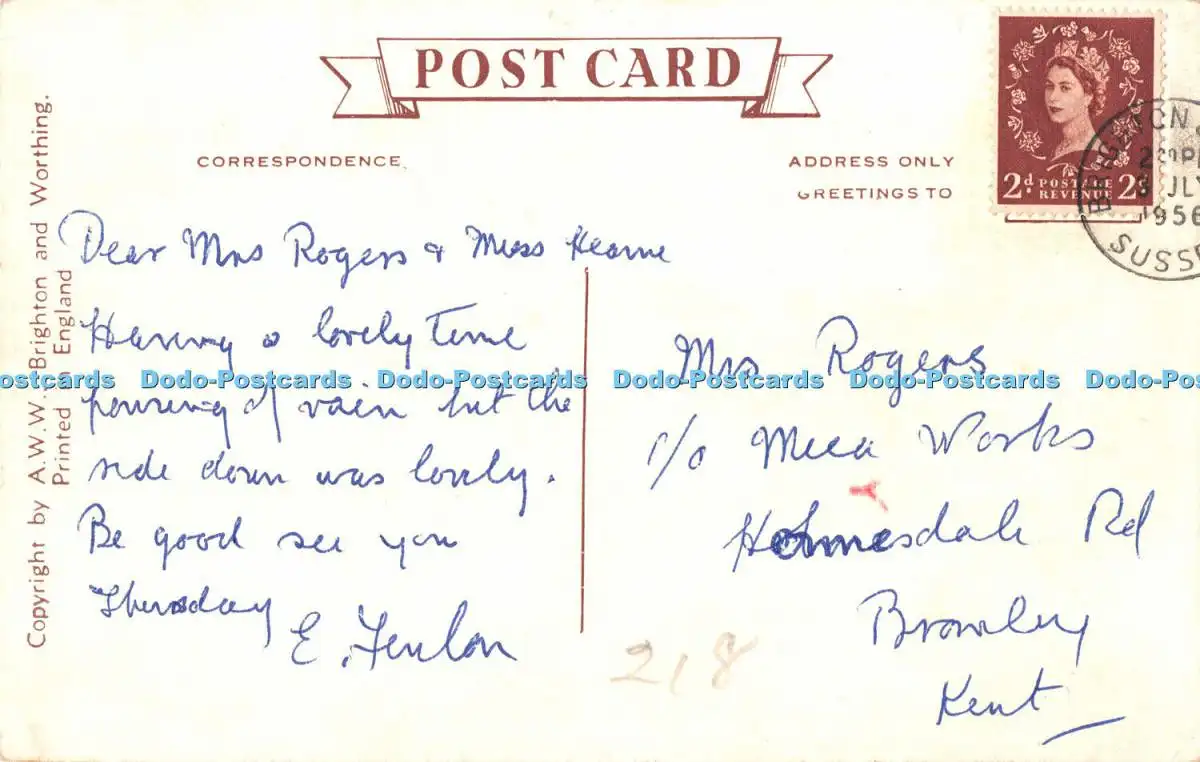 POST CARD
CORRESPONDENCE
ADDRESS ONLY
GREETINGS TO
2d. POSTAGE REVENUE 2d.
BRIGHTON
PM
JLY
1956
SUSSE
Copyright by A.W.W. Brighton and Worthing.
Printed in England
Dear Mrs Rogers & Miss Hearne
Having a lovely time
pouring of rain but the
ride down was lovely.
Be good see you
Thursday
E. Fenlon
Mrs Rogers
c/o Works
Holmesdale Rd
Bromley
Kent
218
Dodo-Postcards Dodo-Postcards Dodo-Postcards Dodo-Postcards Dodo-Postcards Dodo-Postcards